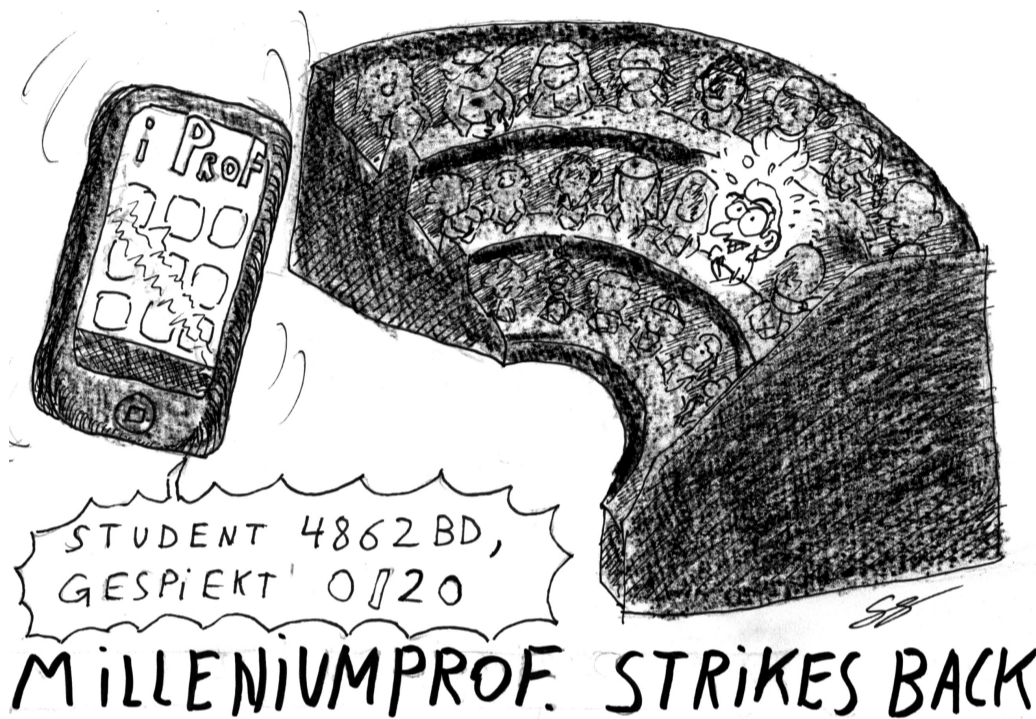 i PROF
STUDENT 4862BD,
GESPIEKT' 0/20
MILLENIUMPROF. STRIKES BACK